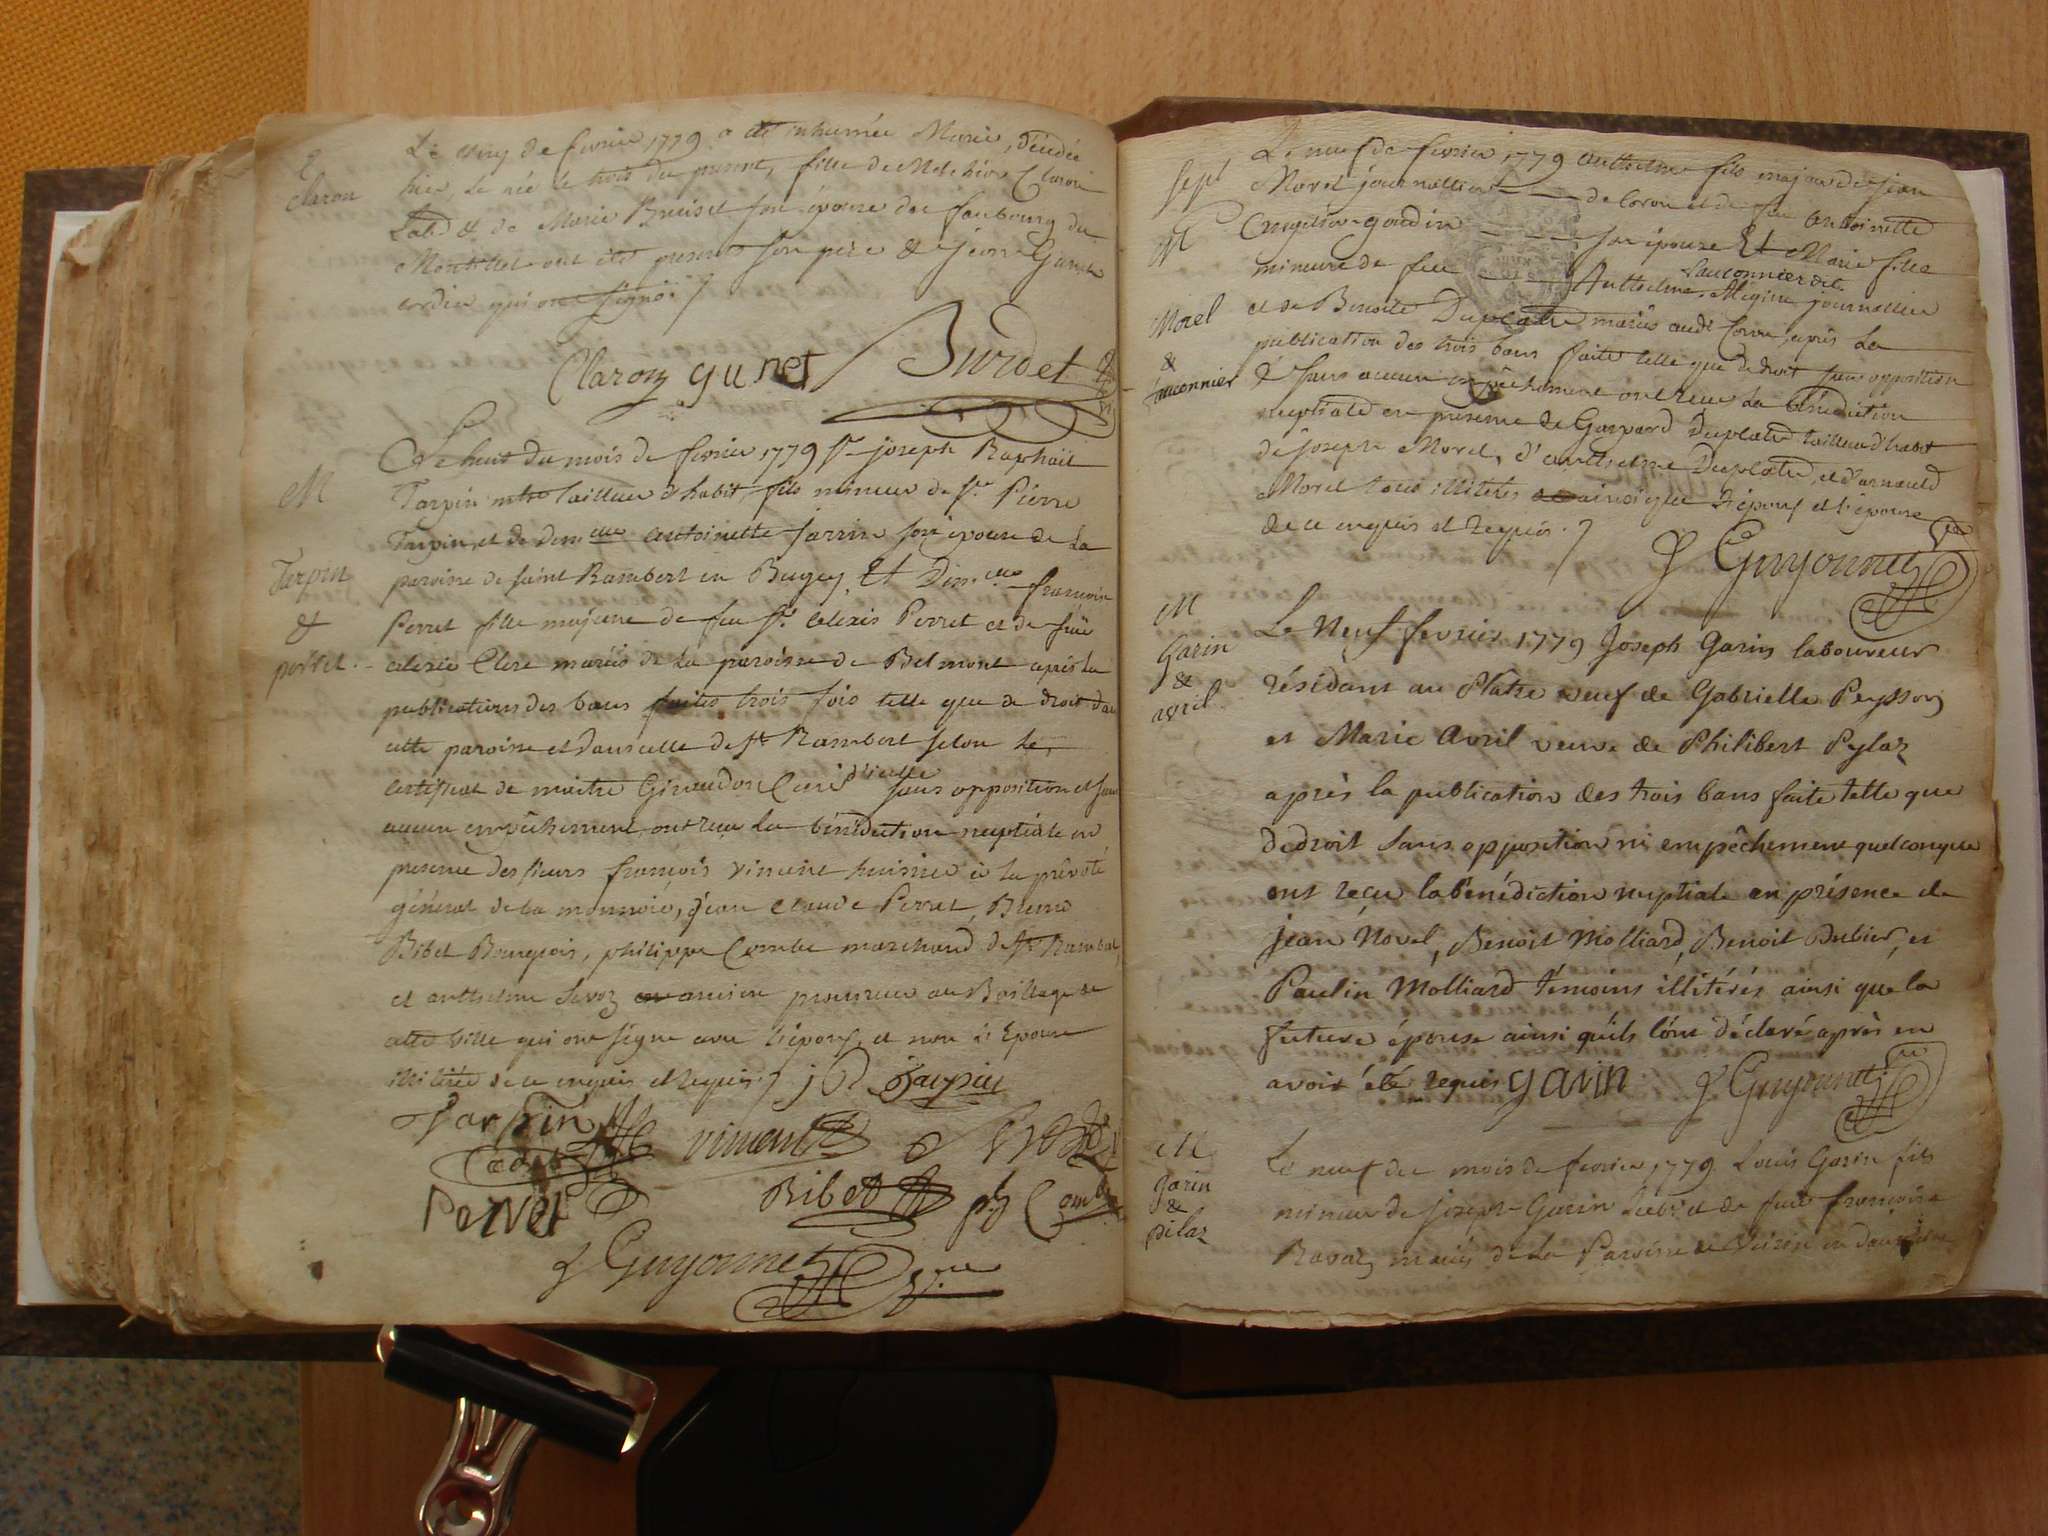 Claron
Le cinq de fevrier 1779 a été inhumée Marie, décédée
hier, née le trois du present, fille de Melchior Claron
Lab.r & de Marie son épouse du faubourg du
ont été presents son père & jean Gunet
cordier qui ont signé
Claron gunet Burdet
M
Tarpin
&
perret
Le huit du mois de fevrier 1779 sr joseph Raphaël
Tarpin mtre tailleur d'habit, fils mineur de sr Pierre
Tarpin et de dem.elle antoinette Jarrin son épouse de la
paroisse de saint Rambert en Bugey, Et Dem.elle françoise
Perret fille majeure de feu sr. alexis Perret et de füe
Clere mariés de la paroisse de Belmont après la
publications des bans faites trois fois telle que de droit dans
cette paroisse et dans celle de St Rambert selon le
certificat de maitre Giraudon Curé d'icelle sans opposition et sans
aucun empêchement, ont reçu la bénédiction nuptiale en
presence des sieurs françois vincent huissier à la prévôté
général de la monnoie, jean claude Perret, Bruno
Bibet Bourgeois, philippe Combe marchand de St Rambert,
et anthelme Sevoz ancien procureur au Bailliage de
cette ville qui ont signé avec l'époux, et non l'Epouse
illitérée de ce enquis et requis j R Tarpin
Tarpin vincent
Cadet
Perret Bibet ph Combe
J Guyonnet V.re
sept
M
Morel
&
fauconnier
Le neuf de fevrier 1779 anthelme fils majeur de jean
Morel journallier de Coron et de feu antoinette
Cuzilin-goudin son épouse Et Marie fille
mineure de feu Anthelme fauconnier dit Mégine journallier
et de Benoite Duplatre mariés audt Coron, après la
publication des trois bans faite telle que de droit sans opposition
& sans aucun empêchement ont reçu la bénédiction
nuptiale en presence de Gaspard Duplatre tailleur d'habit
de joseph Morel, d'anthelme Duplatre, et d'arnauld
Morel tous illiterés ainsi que l'époux et l'épouse
de ce enquis et requis.
J Guyonnet V.re
M
Garin
&
avril
Le Neuf fevrier 1779 Joseph Garin laboureur
résidant au Platre veuf de Gabrielle Peysson
et Marie Avril veuve de Philibert Pylaz
après la publication des trois bans faite telle que
de droit sans opposition ni empêchement quelconque
ont reçu la bénédiction nuptiale en présence de
jean Novel, Benoit Molliard, Benoit Dubier, et
Paulin Molliard témoins illitérés ainsi que la
future épouse ainsi qu'ils l'ont déclaré après en
avoir été requis garin J Guyonnet V.re
M
Garin
&
pilaz
Le neuf du mois de fevrier 1779 Louis Garin fils
mineur de joseph Garin Lab.r et de feue françoise
Ravaz mariés de la Paroisse de en dauphiné